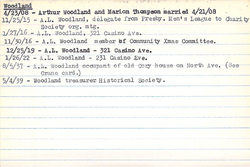 Woodland
4/23/08 - Arthur Woodland and Marion Thompson married 4/21/08
11/23/15 - A.L. Woodland, delegate from Presby. Men's League to Charity
Society org. mtg.
1/27/16 - A.L. Woodland, 321 Casino Ave.
11/30/16 - A.L. Woodland member of Community Xmas Committee.
12/25/19 - A.L. Woodland - 321 Casino Ave.
1/26/22 - A.L. Woodland - 231 Casino Ave.
8/5/37 - A.L. Woodland occupant of old Cory house on North Ave. (See
Crane card.)
5/4/39 - Woodland treasurer Historical Society.